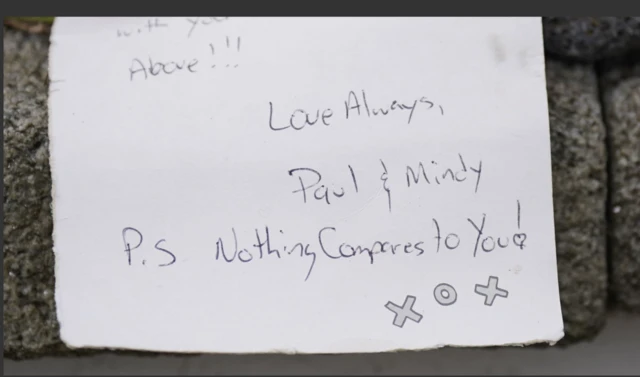 with you
Above!!!
Love Always,
Paul & Mindy
P.S Nothing Compares to You!
XOX